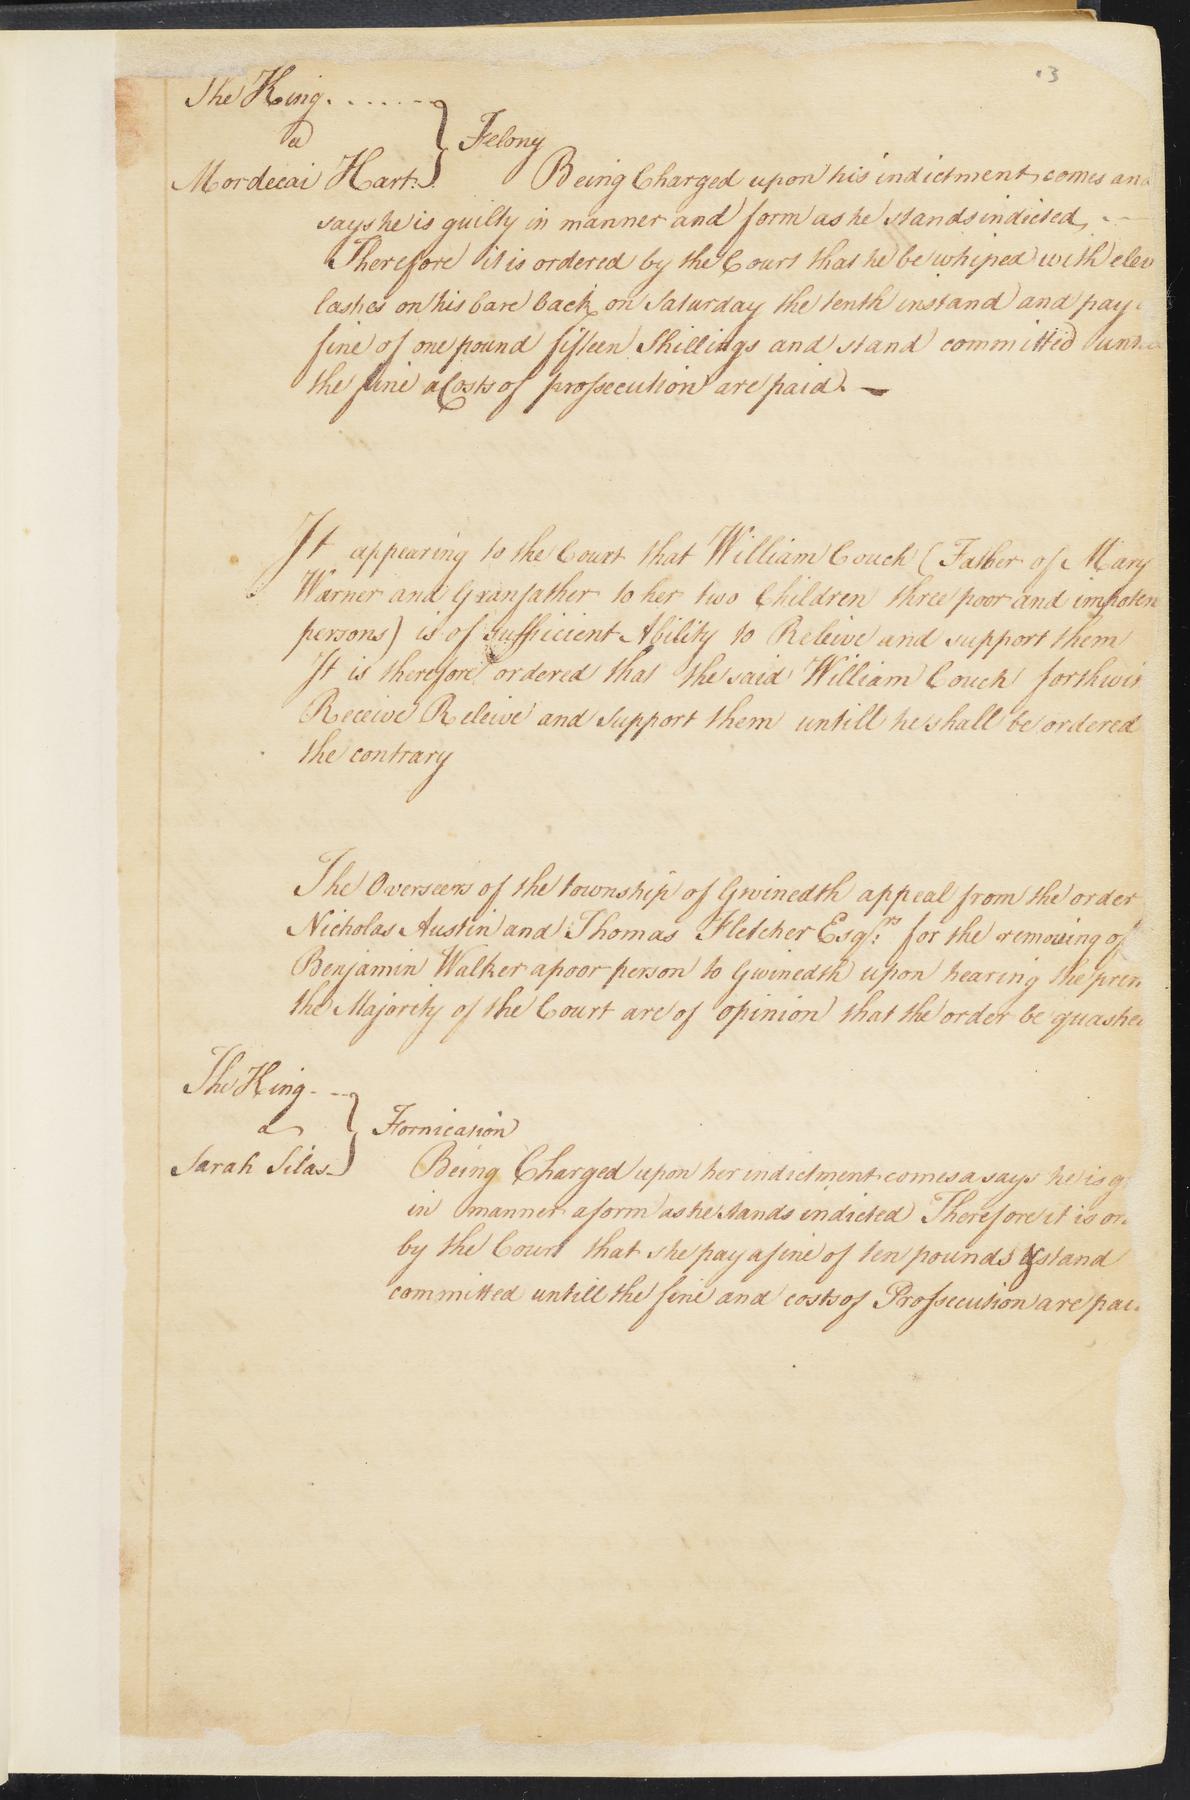 13
The King.......
a
Mordecai Hart.
Felony
Being Charged upon his indictment comes and
says he is guilty in manner and form as he stands indicted
Therefore it is ordered by the Court that he be whiped with elev
lashes on his bare back on Saturday the tenth instand and pay
fine of one pound fifteen Shillings and stand committed unt
the fine a Costs of prossecution are paid. —
It appearing to the Court that William Couch (Father of Mary
Warner and Granfather to her two Children three poor and impoten
persons) is of sufficient Ability to Releive and support them
It is therefore ordered that the said William Couch forthwi
Receive Releive and support them untill he shall be ordered
the contrary
The Overseers of the township of Gwinedth appeal from the order
Nicholas Austin and Thomas Fletcher Esqrs: for the removing of
Benjamin Walker a poor person to Gwinedth upon hearing the prem
the Majority of the Court are of opinion that the order be quashe
The King
a
Sarah Silas
Fornication
Being Charged upon her indictment comes a says he is g
in manner a form as he stands indicted Therefore it is or
by the Court that she pay a fine of ten pounds & stand
committed untill the fine and costs of Prossecution are pai